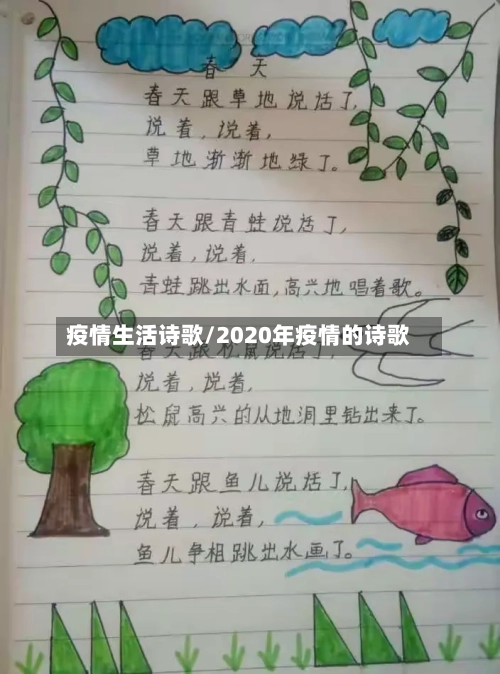 春 天
春天跟草地说话了,
说着,说着,
草地渐渐地绿了。
春天跟青蛙说话了,
说着,说着,
青蛙跳出水面,高兴地唱着歌。
疫情生活诗歌/2020年疫情的诗歌
春天跟松鼠说话了,
说着,说着,
松鼠高兴的从地洞里钻出来了。
春天跟鱼儿说话了,
说着,说着,
鱼儿争相跳出水面了。